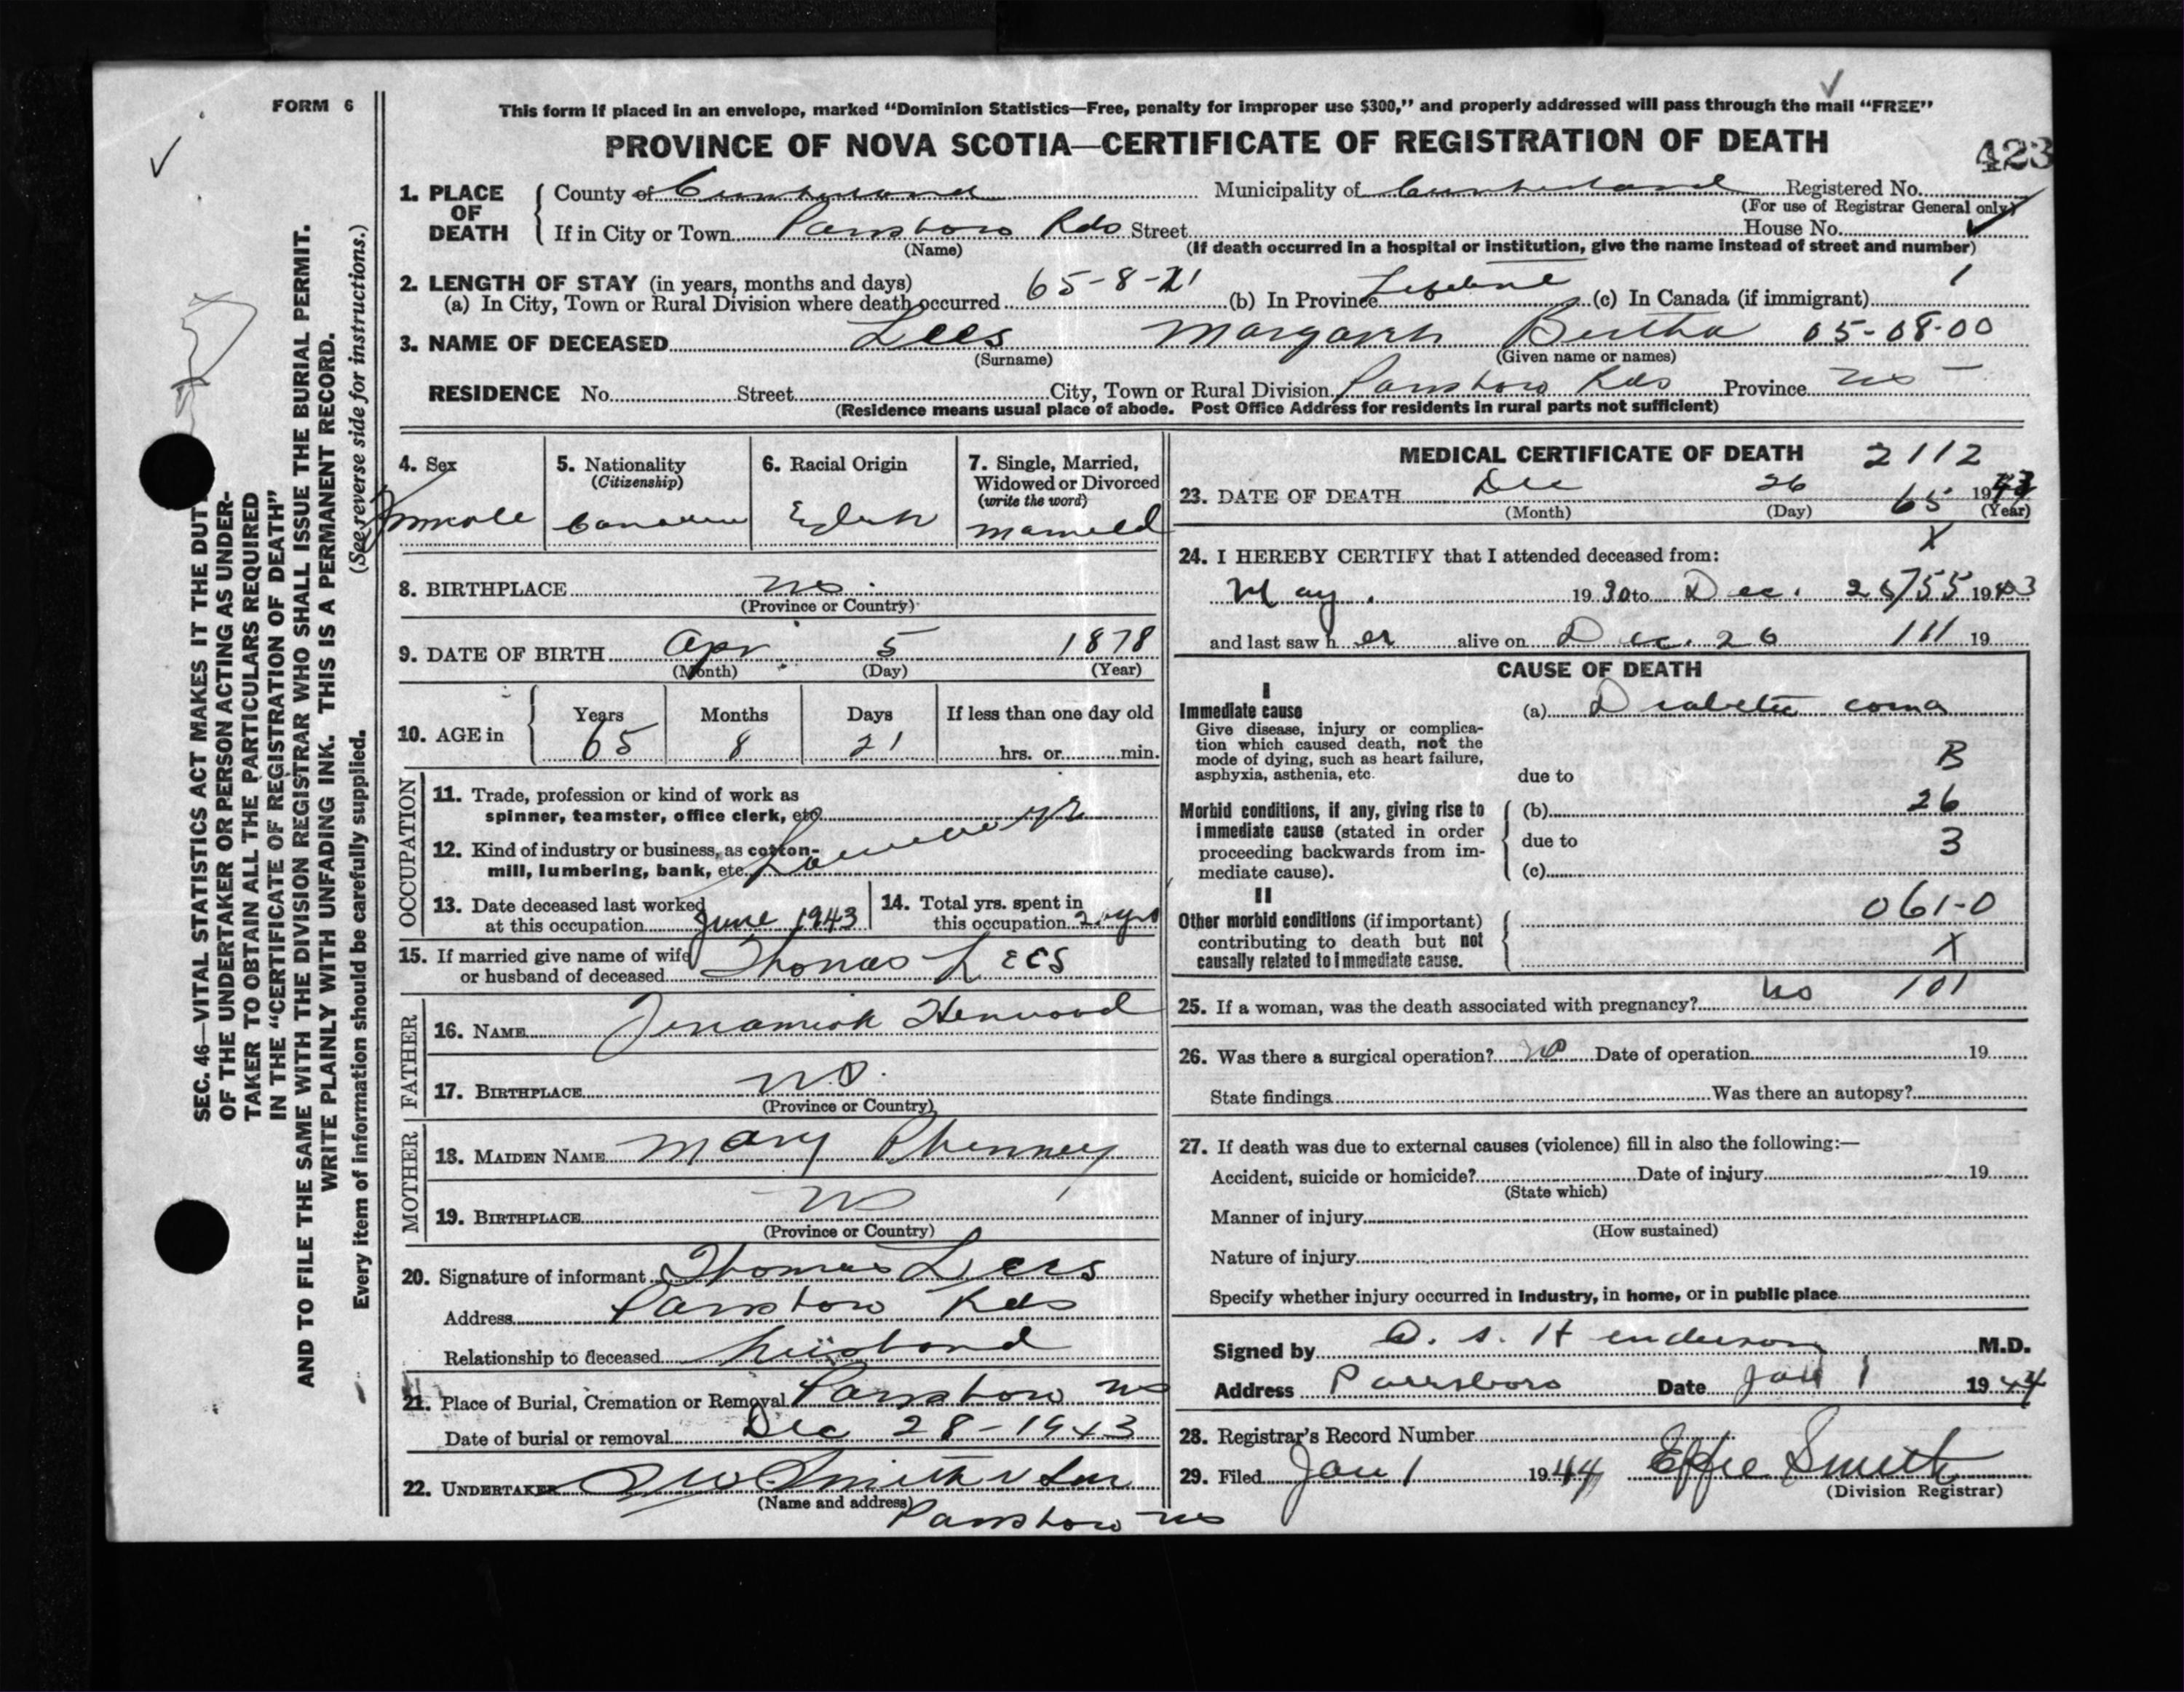 FORM 6
This form if placed in an envelope, marked “Dominion Statistics—Free, penalty for improper use $300,” and properly addressed will pass through the mail “FREE”
PROVINCE OF NOVA SCOTIA—CERTIFICATE OF REGISTRATION OF DEATH
423
1. PLACE OF DEATH
County of Cumberland Municipality of Cumberland Registered No.
(For use of Registrar General only)
If in City or Town Parrsboro Rds Street House No.
(Name) (If death occurred in a hospital or institution, give the name instead of street and number)
2. LENGTH OF STAY (in years, months and days)
(a) In City, Town or Rural Division where death occurred 65-8-21 (b) In Province Lifetime (c) In Canada (if immigrant)
3. NAME OF DECEASED Lees Margaret Bertha 05-08-00
(Surname) (Given name or names)
RESIDENCE No. Street City, Town or Rural Division Parrsboro Rds Province NS
(Residence means usual place of abode. Post Office Address for residents in rural parts not sufficient)
4. Sex
5. Nationality
(Citizenship)
Canadian
6. Racial Origin
English
7. Single, Married, Widowed or Divorced
(write the word)
Married
8. BIRTHPLACE NS.
(Province or Country)
9. DATE OF BIRTH Apr 5 1878
(Month) (Day) (Year)
10. AGE in
Years Months Days If less than one day old
65 8 21 hrs. or min.
OCCUPATION
11. Trade, profession or kind of work as
spinner, teamster, office clerk, etc.
12. Kind of industry or business, as cotton-
mill, lumbering, bank, etc.
13. Date deceased last worked
at this occupation June 1943
14. Total yrs. spent in
this occupation
15. If married give name of wife
or husband of deceased Thomas Lees
FATHER
16. NAME Jeremiah Henwood
17. BIRTHPLACE NS.
(Province or Country)
MOTHER
18. MAIDEN NAME Mary Phinney
19. BIRTHPLACE NS
(Province or Country)
20. Signature of informant Thomas Lees
Address Parrsboro Rds
Relationship to deceased husband
21. Place of Burial, Cremation or Removal Parrsboro NS
Date of burial or removal Dec 28-1943
22. UNDERTAKER Smith & Son
(Name and address)
Parrsboro NS
MEDICAL CERTIFICATE OF DEATH 2112
23. DATE OF DEATH Dec 26 1943
65
(Month) (Day) (Year)
X
24. I HEREBY CERTIFY that I attended deceased from:
May. 1930 to Dec. 26 755 1943
and last saw her alive on Dec. 26 111 19
CAUSE OF DEATH
I
Immediate cause
Give disease, injury or complica-
tion which caused death, not the
mode of dying, such as heart failure,
asphyxia, asthenia, etc.
(a) Diabetic coma
B
due to
Morbid conditions, if any, giving rise to
immediate cause (stated in order
proceeding backwards from im-
mediate cause).
(b) 26
due to 3
(c)
II
Other morbid conditions (if important)
contributing to death but not
causally related to immediate cause.
061-0
X
25. If a woman, was the death associated with pregnancy? No 101
26. Was there a surgical operation? no Date of operation 19
State findings Was there an autopsy?
27. If death was due to external causes (violence) fill in also the following:—
Accident, suicide or homicide? Date of injury 19
(State which)
Manner of injury
(How sustained)
Nature of injury
Specify whether injury occurred in industry, in home, or in public place
Signed by Henderson M.D.
Address Parrsboro Date Jan 1 1944
28. Registrar’s Record Number
29. Filed Jan 1 1944 Effie Smith
(Division Registrar)
SEC. 46—VITAL STATISTICS ACT MAKES IT THE DUTY
OF THE UNDERTAKER OR PERSON ACTING AS UNDER-
TAKER TO OBTAIN ALL THE PARTICULARS REQUIRED
IN THE “CERTIFICATE OF REGISTRATION OF DEATH”
AND TO FILE THE SAME WITH THE DIVISION REGISTRAR WHO SHALL ISSUE THE BURIAL PERMIT.
WRITE PLAINLY WITH UNFADING INK. THIS IS A PERMANENT RECORD.
Every item of information should be carefully supplied. (See reverse side for instructions.)